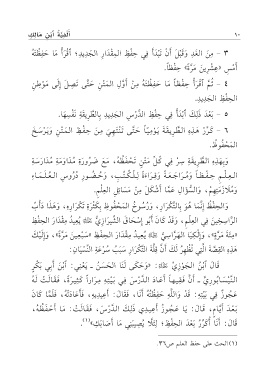 ١٠ أَلْفِيَّةُ ابْنِ مَالِكٍ
٣ - مِنَ الْغَدِ وَقَبْلَ أَنْ تَبْدَأَ فِي حِفْظِ المِقْدَارِ الجَدِيدِ؛ اقْرَأْ مَا حَفِظْتَهُ
أَمْسِ «عِشْرِينَ مَرَّةً» حِفْظًا.
٤ - ثُمَّ اقْرَأْ حِفْظًا مَا حَفِظْتَهُ مِنْ أَوَّلِ المَتْنِ حَتَّى تَصِلَ إِلَى مَوْطِنِ
الحِفْظِ الجَدِيدِ.
٥ - بَعْدَ ذَلِكَ ابْدَأْ فِي حِفْظِ الدَّرْسِ الجَدِيدِ بِالطَّرِيقَةِ نَفْسِهَا.
٦ - كَرِّرْ هَذِهِ الطَّرِيقَةَ يَوْمِيًّا حَتَّى تَنْتَهِيَ مِنْ حِفْظِ المَتْنِ وَيَرْسَخَ
المَحْفُوظُ.
وَبِهَذِهِ الطَّرِيقَةِ سِرْ فِي كُلِّ مَتْنٍ تَحْفَظُهُ، مَعَ ضَرُورَةِ مُدَاوَمَةِ مُدَارَسَةِ
العِلْمِ حِفْظًا وَمُرَاجَعَةً وَقِرَاءَةً لِلْكُتُبِ، وَحُضُورِ دُرُوسِ العُلَمَاءِ
وَمُلَازَمَتِهِمْ، وَالسُّؤَالِ عَمَّا أَشْكَلَ مِنْ مَسَائِلِ العِلْمِ.
وَالحِفْظُ إِنَّمَا هُوَ بِالتَّكْرَارِ، وَرُسُوخُ المَحْفُوظِ بِكَثْرَةِ تَكْرَارِهِ، وَهَذَا دَأْبُ
الرَّاسِخِينَ فِي العِلْمِ، وَقَدْ كَانَ أَبُو إِسْحَاقَ الشِّيرَازِيُّ يُعِيدُ مِقْدَارَ الحِفْظِ
«مِئَةَ مَرَّةٍ»، وَإِلْكِيَا الهَرَّاسِيُّ يُعِيدُ مِقْدَارَ الحِفْظِ «سَبْعِينَ مَرَّةً»، وَإِلَيْكَ
هَذِهِ القِصَّةَ الَّتِي تُظْهِرُ لَكَ أَنَّ قِلَّةَ التَّكْرَارِ سَبَبُ سُرْعَةِ النِّسْيَانِ:
قَالَ ابْنُ الجَوْزِيِّ: «وَحَكَى لَنَا الحَسَنُ - يَعْنِي: ابْنَ أَبِي بَكْرٍ
النَّيْسَابُورِيَّ - أَنَّ فَقِيهًا أَعَادَ الدَّرْسَ فِي بَيْتِهِ مِرَارًا كَثِيرَةً، فَقَالَتْ لَهُ
عَجُوزٌ فِي بَيْتِهِ: قَدْ وَاللَّهِ حَفِظْتُهُ أَنَا، فَقَالَ: أَعِيدِيهِ، فَأَعَادَتْهُ، فَلَمَّا كَانَ
بَعْدَ أَيَّامٍ، قَالَ: يَا عَجُوزُ أَعِيدِي ذَلِكَ الدَّرْسَ، فَقَالَتْ: مَا أَحْفَظُهُ،
قَالَ: أَنَا أُكَرِّرُ بَعْدَ الحِفْظِ؛ لِئَلَّا يُصِيبَنِي مَا أَصَابَكِ»(١).
(١) الحث على حفظ العلم ص٣٦.